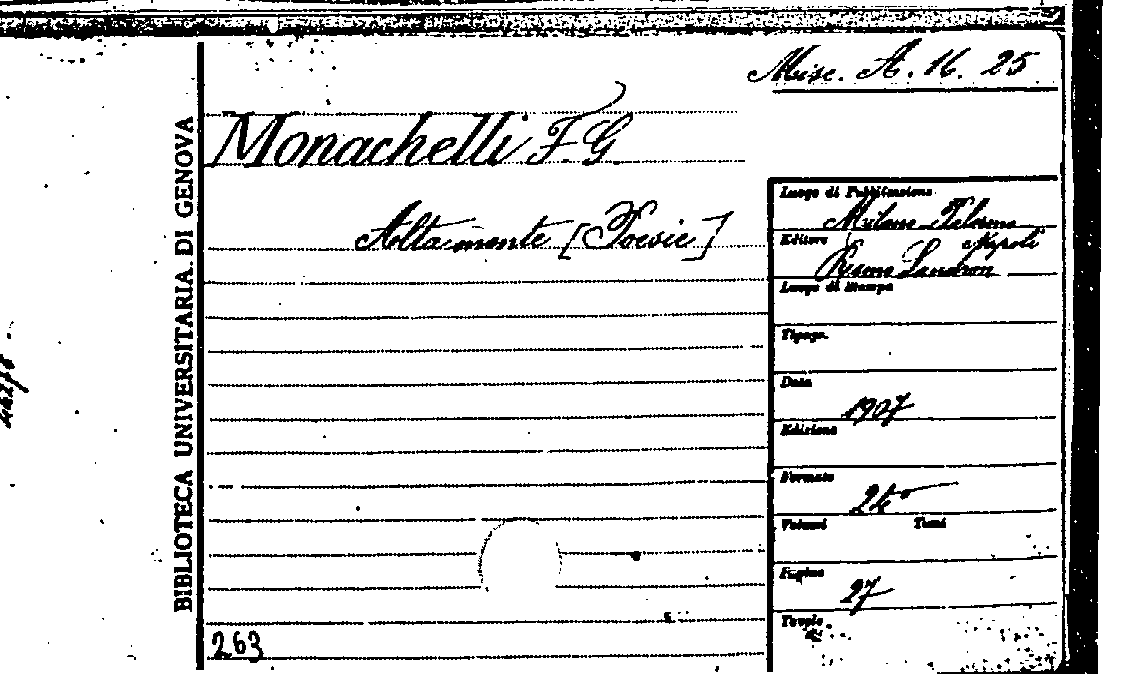 Misc. A. 16. 25
BIBLIOTECA UNIVERSITARIA DI GENOVA
Monachelli F. G.
Altamente [Poesie]
Luogo di Pubblicazione
Milano Palermo
Napoli
Editore
Remo Sandron
Luogo di Stampa
Tipogr.
Data
1907
Edizione
Formato
24°
Volumi Tomi
Pagine
27
Tavole
263